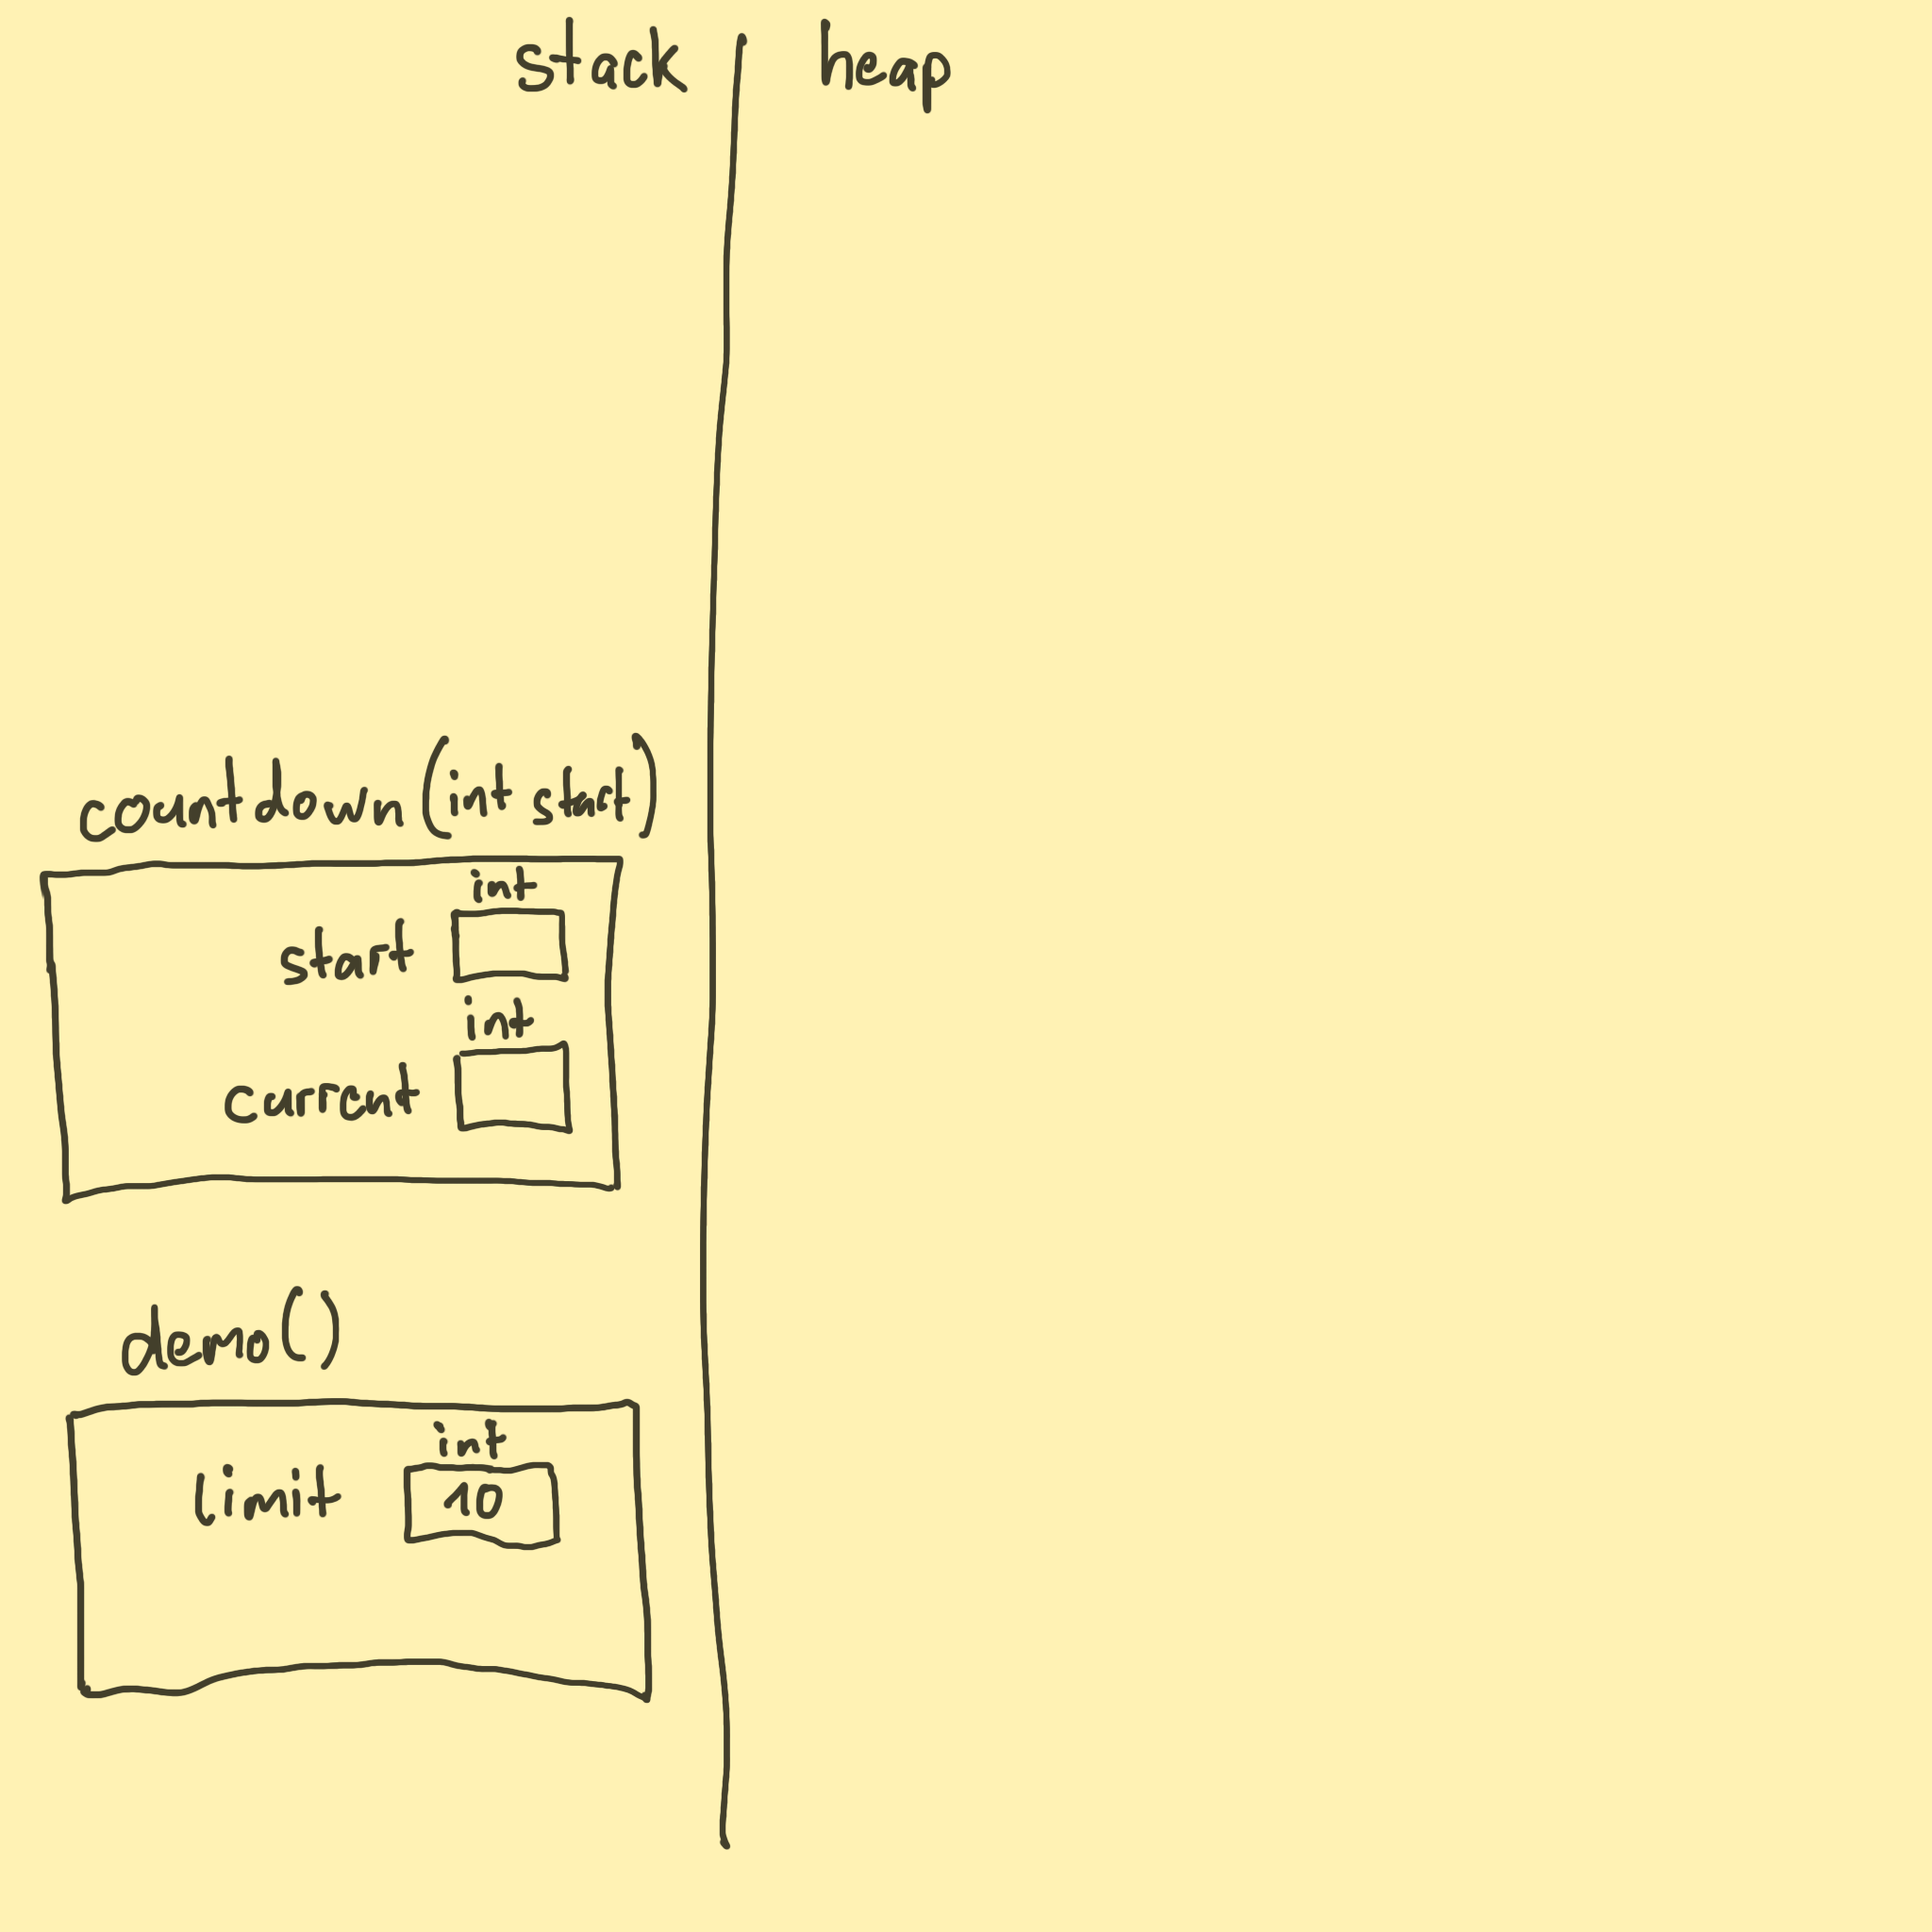 stack heap
countdown (int start)
int
start
int
current
demo()
int
limit 10